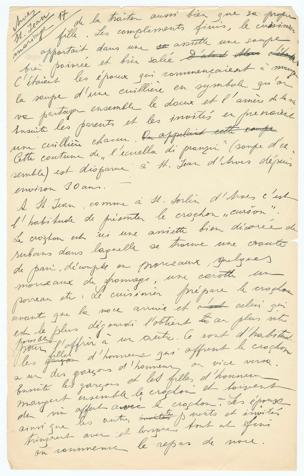 Arves
St. Jean
mariage
de la traiter aussi bien que sa propre
fille. Les compliments finis, le cuisinier
apportait dans une assiette une soupe
très poivrée et bien salée
C'étaient les époux qui commençaient à manger
la soupe d'une cuillère en symbole qu'on
va partager ensemble le doux et l'amer de la vie
Ensuite les parents et les invités en prenaient
une cuillère chacun.
Cette coutume de "l'écuella di prangi" (soupe d'en-
semble) est disparue à St. Jean d'Arves depuis
environ 30 ans. —
A St Jean, comme à St. Sorlin d'Arves c'est
l'habitude de présenter le croghon "cuison",
Le croghon est une assiette bien décorée de
rubans dans laquelle se trouve une croûte
de pain, découpée en morceaux, quelques
morceaux de fromage, une carotte un
poireau etc. Le cuisinier prépare le croghon
avant que la noce arrive et celui qui
est le plus dégourdi l'obtient au plus vite
pour l'offrir à un autre. Ce sont d'habitude
les filles d'honneur qui offrent le croghon
à un des garçons d'honneur ou vice versa
Ensuite les garçons et les filles d'honneur
mangent ensemble le croghon et boivent
du vin Les époux
ainsi que les autres parents et invités
trinquent avec et lorsque tout est fini
on commence le repas de noce.